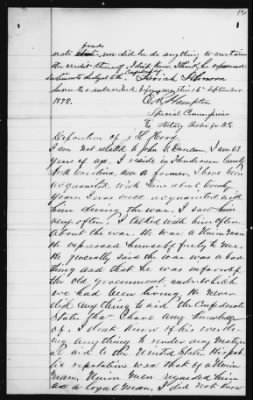 nor did he do anything to sustain
the credit
sentiments disloyal to the
Sworn to & subscribed before me this 16th September
1872.
E. H. Hampton
Special Commissioner
& Notary Public for N.C
Deposition of
I am not related to John G. Duncan, I am 63
years of age. I reside in Henderson County
North Carolina, am a farmer, I have been
acquainted with him about twenty
years. I was well acquainted with
him during the war. I saw him
very often. I talked with him often
about the war. He was a Union man
He expressed himself freely to me.
He generally said the war was a bad
thing and that he was in favor of
the old government under which
we had been living. He never
did anything to aid the Confederate
States that I have any knowledge
of. I don't know of his ever do-
ing anything to render any mater-
ial aid to the United States. His pub-
lic reputation was that of a Union
man, Union men regarded him
as a loyal man. I did not know